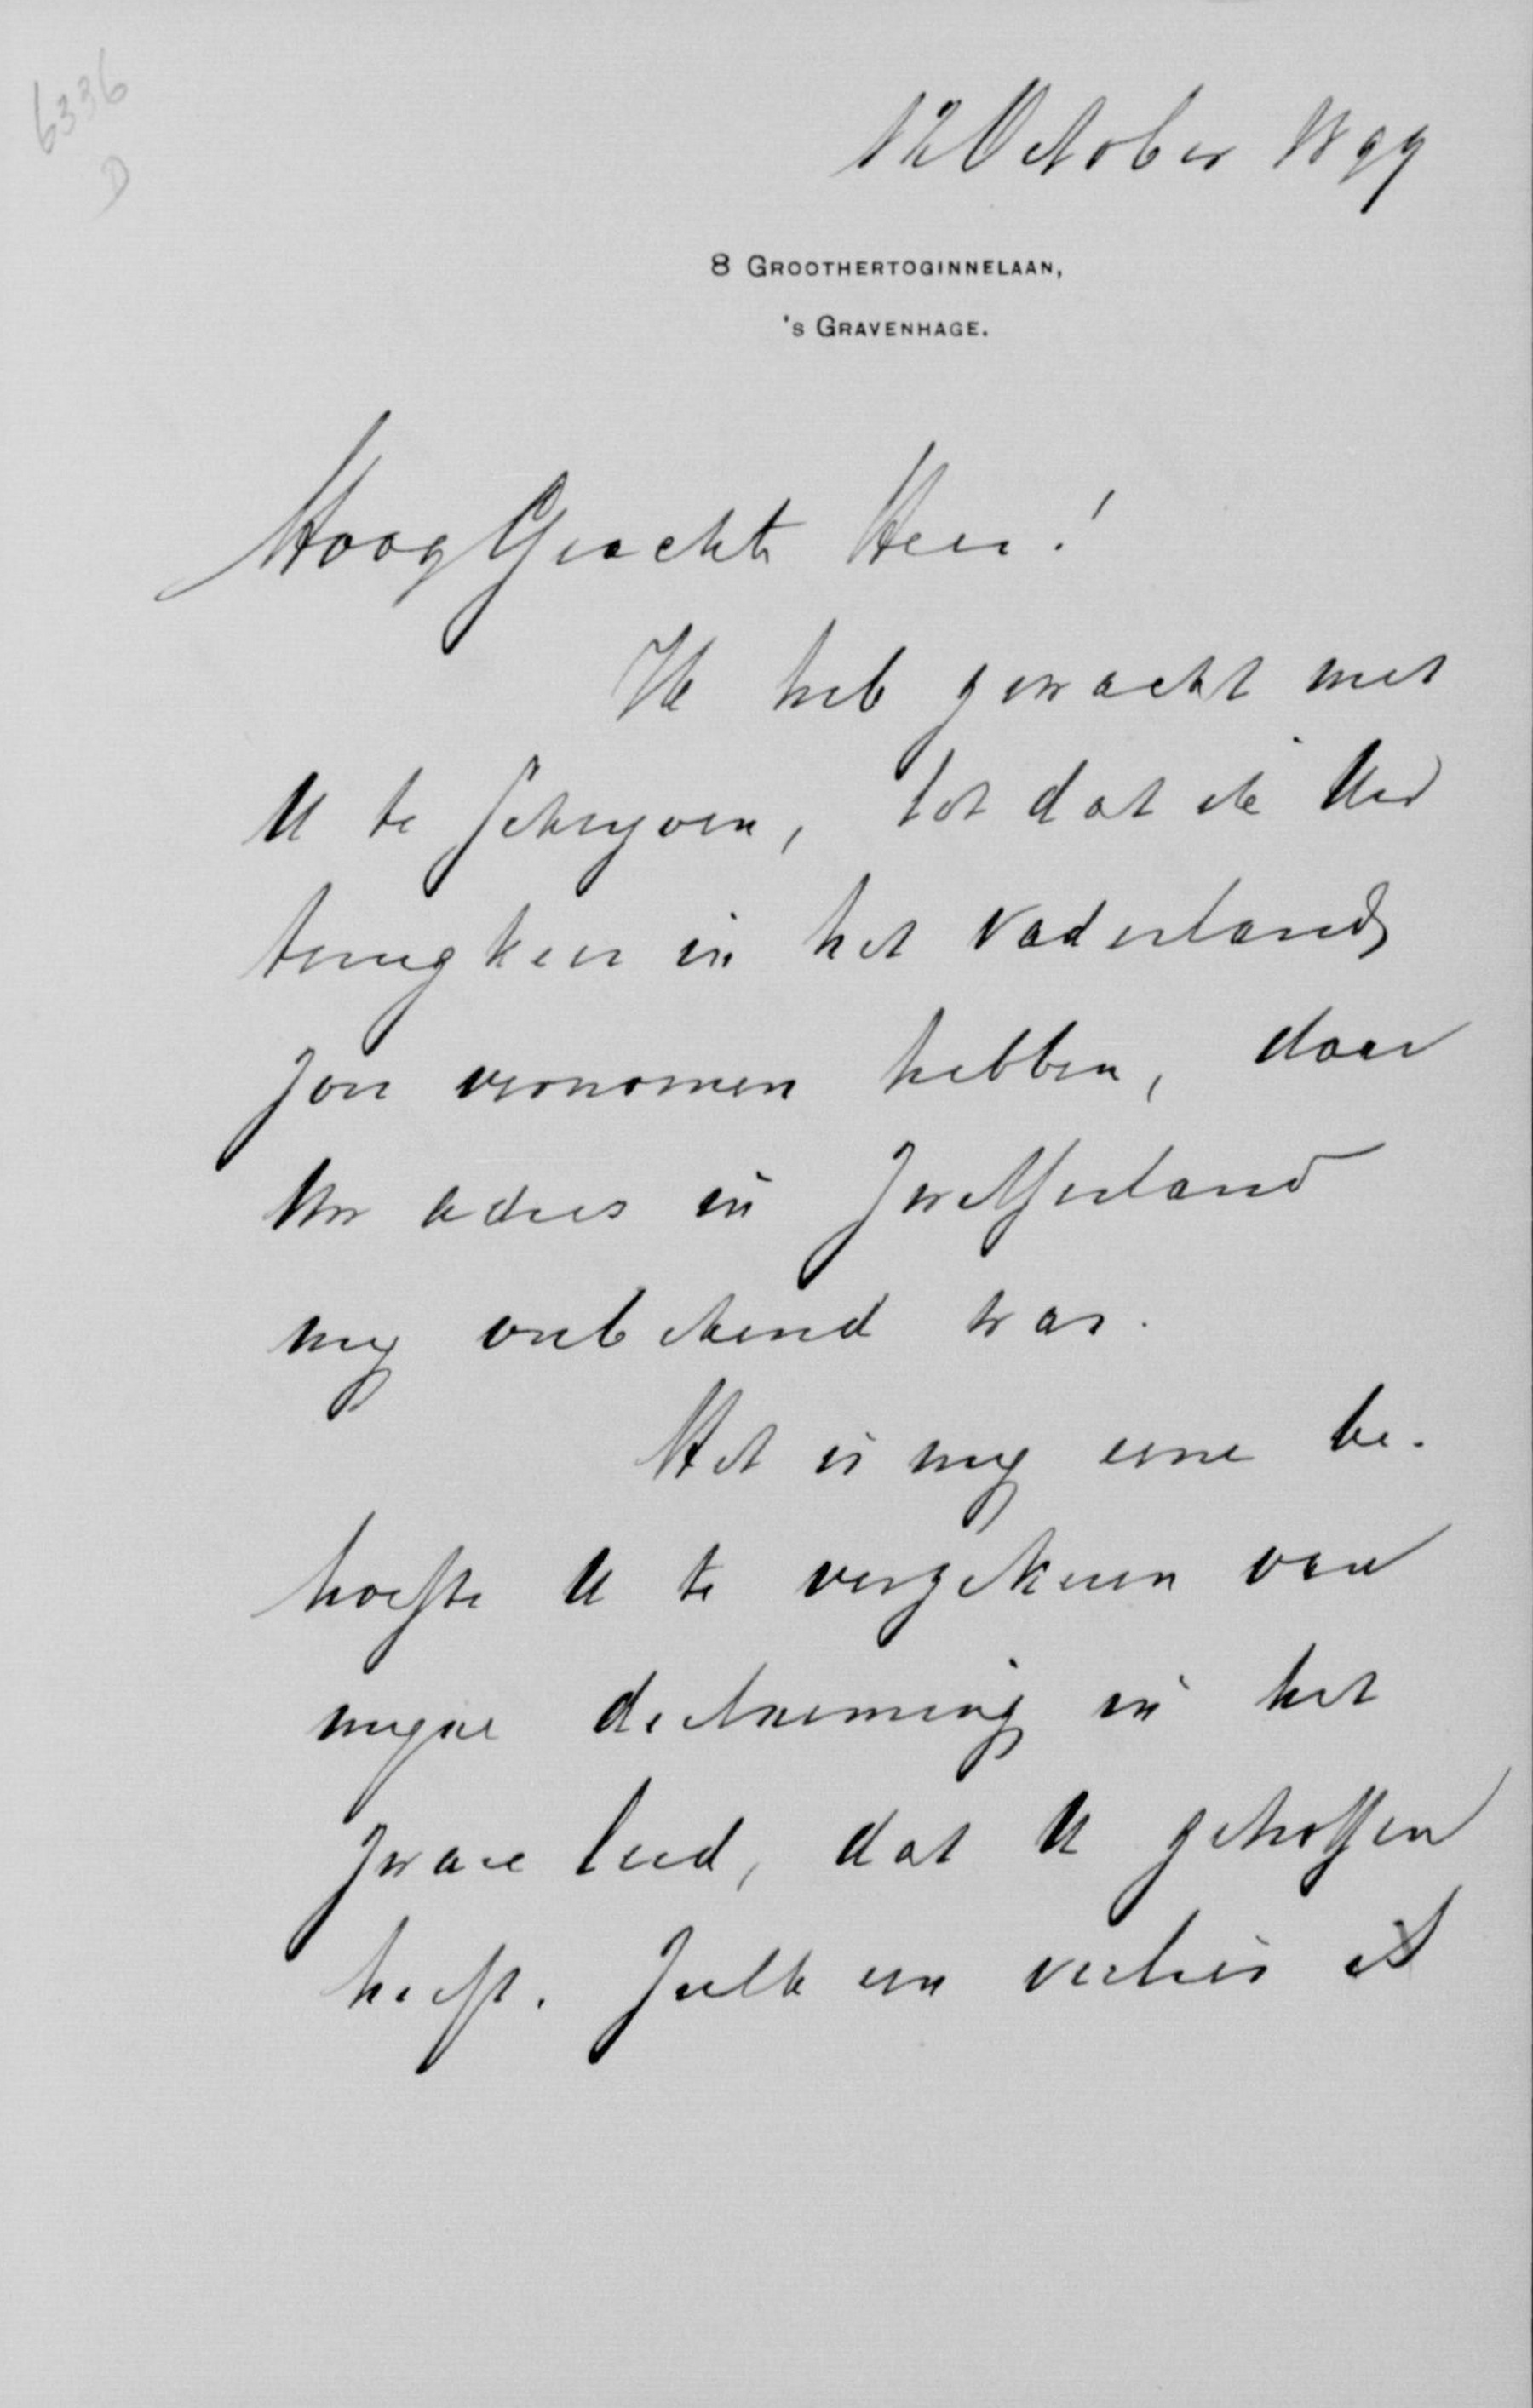 6336
D
12 October 1899
8 GROOTHERTOGINNELAAN,
'S GRAVENHAGE.
HoogGeachte Heer!
Ik heb gewacht met
U te schrijven, tot dat ik Uw
terugkeer in het Vaderland
zou vernomen hebben, daar
Uw adres in Zwitserland
mij onbekend was.
Het is mij eene be-
hoefte U te verzekeren van
mijne deelneming in het
zware leed, dat U getroffen
heeft. Zulk een verlies is